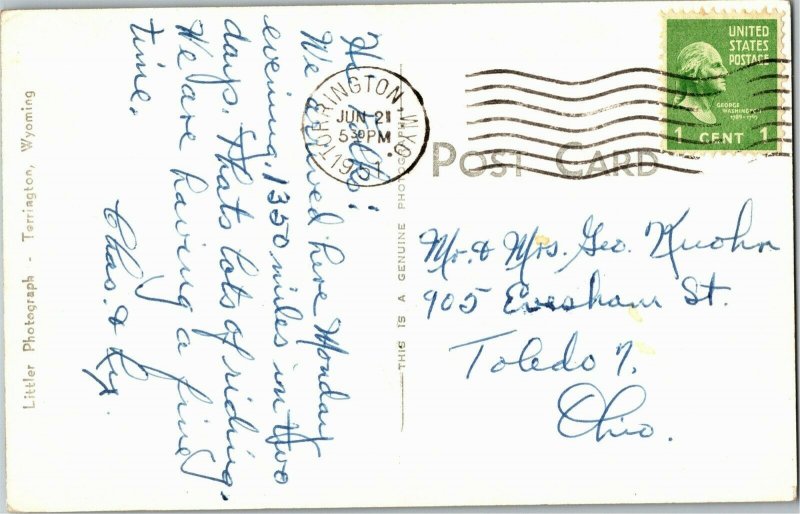 Hi Folks!
We arrived here Monday
evening. 1350 miles in two
days. Thats lots of riding.
We are having a fine
time.
Chas. & Lux.
Littler Photograph - Torrington, Wyoming
THIS IS A GENUINE PHOTOGRAPH
TORRINGTON, WYO.
JUN 21
5 30 PM
1951
UNITED
STATES
POSTAGE
GEORGE
WASHINGTON
1 CENT 1
POST CARD
Mr. & Mrs. Geo. Kuohn
905 Evesham St.
Toledo 7.
Ohio.